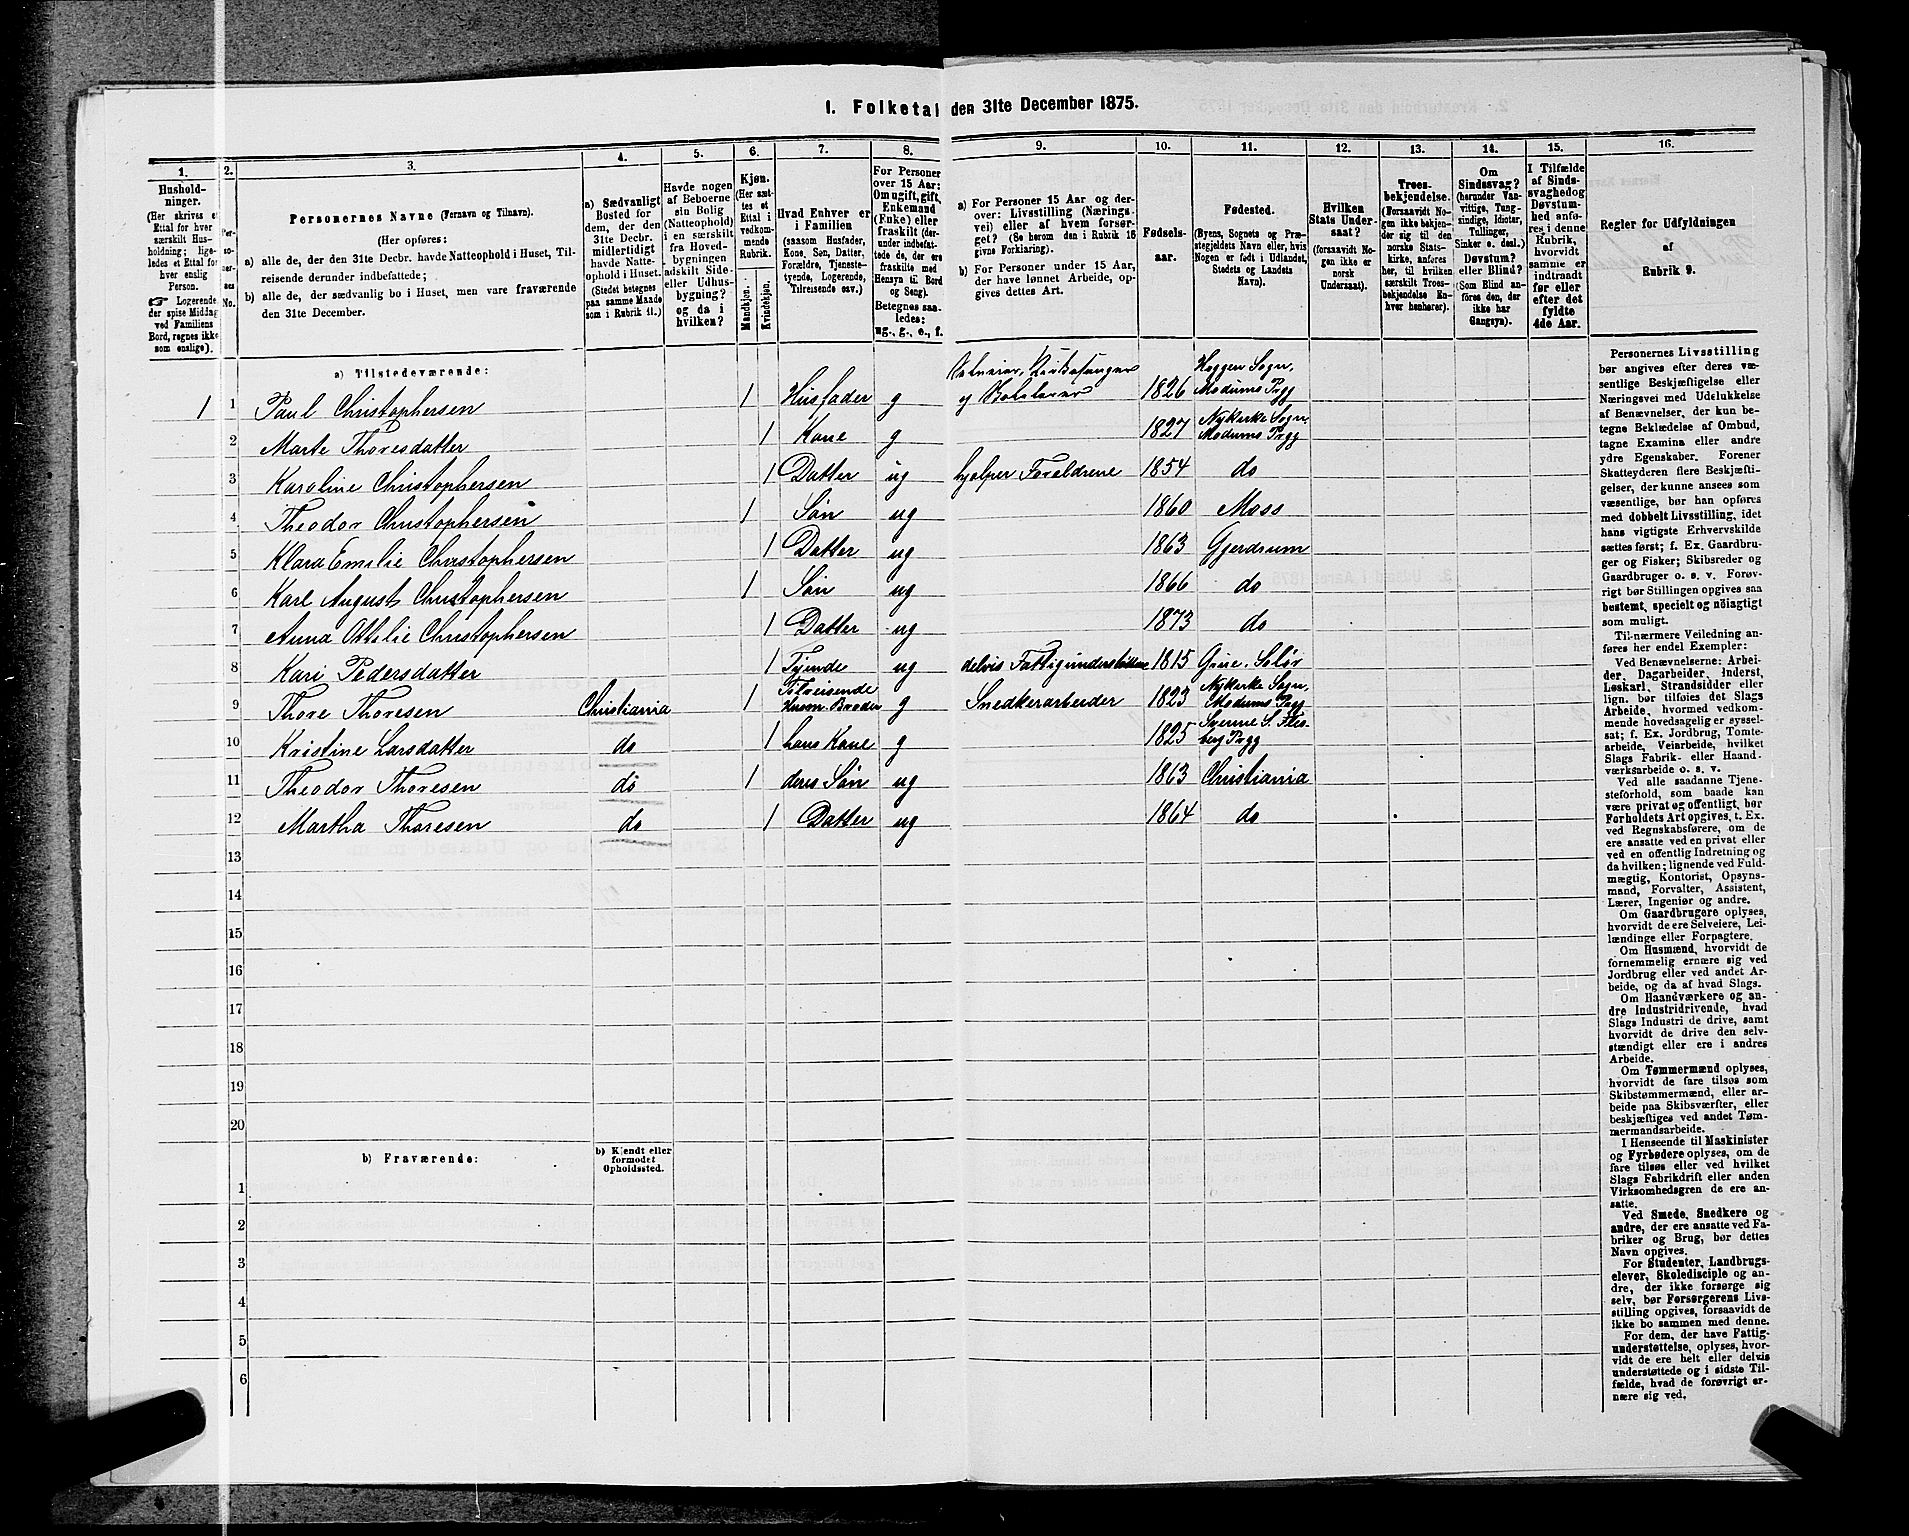 1. Folketal den 31te December 1875.
1.
2.
3.
4.
5.
6.
7.
8.
9.
10.
11.
12.
13.
14.
15.
16.
Hushold-
ninger.
(Her skrives et
Ettal for hver
særskilt Hus-
holdning; lige-
ledes et Ettal for
hver enslig
Person.
☞ Logerende,
der spise Middag
ved Familiens
Bord, regnes ikke
som enslige).
Per-
so-
ner-
nes
No.
Personernes Navne (Fornavn og Tilnavn).
(Her opføres:
a) alle de, der den 31te Decbr. havde Natteophold i Huset, Til-
reisende derunder indbefattede;
b) alle de, der sædvanlig bo i Huset, men vare fraværende
den 31te December.
a) Sædvanligt
Bosted for
dem, der den
31te Decbr.
midlertidigt
havde Natte-
ophold i Huset.
(Stedet betegnes
paa samme Maade
som i Rubrik 11.)
Havde nogen
af Beboerne
sin Bolig
(Natteophold)
i en særskilt
fra Hoved-
bygningen
adskilt Side-
eller Udhus-
bygning?
og da i
hvilken?
Kjøn.
(Her sæt-
tes et
Ettal i
vedkom-
mende
Rubrik.
Mandkjøn.
Kvindekjøn.
Hvad Enhver er
i Familien
(saasom Husfader,
Kone, Søn, Datter,
Forældre, Tjeneste-
tyende, Logerende,
Tilreisende osv.)
For Personer
over 15 Aar:
Om ugift, gift,
Enkemand
(Enke) eller
fraskilt (der-
under indbefat-
tede de, der ere
fraskilte med
Hensyn til Bord
og Seng).
Betegnes saa-
ledes:
ug., g., e., f.
a) For Personer 15 Aar og der-
over: Livsstilling (Nærings-
vei) eller af hvem forsør-
get? (Se herom den i Rubrik 16
givne Forklaring).
b) For Personer under 15 Aar,
der have lønnet Arbeide, op-
gives dettes Art.
Fødsels-
aar.
Fødested.
(Byens, Sognets og Præ-
stegjeldets Navn eller, hvis
Nogen er født i Udlandet,
Stedets og Landets
Navn).
Hvilken
Stats Under-
saat?
(forsaavidt No-
gen ikke er
norsk
Undersaat).
Troes-
bekjendelse.
(Forsaavidt No-
gen ikke bekjen-
der sig til den
norske Stats-
kirke, anføres
her, til hvilken
særskilt Troes-
bekjendelse En-
hver henhører).
Om
Sindssvag?
(herunder Van-
vittige, Tung-
sindige, Idioter,
Tullinger,
Sinker o. desl.)
Døvstum?
eller Blind?
(Som Blind an-
føres den, der
ikke har
Gangsyn).
I Tilfælde
af Sinds-
svaghed og
Døvstum-
hed anfø-
res i denne
Rubrik,
hvorvidt
samme er
indtraadt
før eller
efter det
fyldte
4de Aar.
Regler for Udfyldningen
af
Rubrik 9.
a) Tilstedeværende:
1 1 Paul Christophersen 1 Husfader g Selveier, Kirkesanger og Skolelærer 1826 Heggen Sogn, Modums Prgj
2 Marte Thoresdatter 1 Kone g 1827 Nykirke Sogn, Modums Prgj
3 Karoline Christophersen 1 Datter ug hjælper Forældrene 1854 do
4 Theodor Christophersen 1 Søn ug 1860 Moss
5 Klara Emilie Christophersen 1 Datter ug 1863 Gjerdrum
6 Karl August Christophersen 1 Søn ug 1866 do
7 Anna Ottilie Christophersen 1 Datter ug 1873 do
8 Kari Pedersdatter 1 Tjende ug delvis Fattigunderstøttet 1815 Grue, Solør
9 Thore Thoresen Christiania 1 Tilreisende Husm. Broder g Snedkerarbeider 1823 Nykirke Sogn, Modums Prgj
10 Kristine Larsdatter do 1 hans Kone g 1825 Svenne S. Fles- berg Prgj
11 Theodor Thoresen do 1 deres Søn ug 1863 Christiania
12 Martha Thoresen do 1 Datter ug 1864 do
13
14
15
16
17
18
19
20
b) Fraværende:
b) Kjendt eller
formodet
Opholdssted.
1
2
3
4
5
6
Personernes Livsstilling
bør angives efter deres væ-
sentlige Beskjæftigelse eller
Næringsvei med Udelukkelse
af Benævnelser, der kun be-
tegne Beklædelse af Ombud,
tagne Examina eller andre
ydre Egenskaber. Forener
Skatteyderen flere Beskjæfti-
gelser, der kunne ansees som
væsentlige, bør han opføres
med dobbelt Livsstilling, idet
hans vigtigste Erhvervskilde
sættes først; f. Ex. Gaardbru-
ger og Fisker; Skibsreder og
Gaardbruger o. s. v. Forøv-
rigt bør Stillingen opgives saa
bestemt, specielt og nøiagtigt
som muligt.
Til nærmere Veiledning an-
føres her endel Exempler:
Ved Benævnelserne: Arbei-
der, Dagarbeider, Inderst,
Løskarl, Strandsidder eller
lign. bør tilføies det Slags
Arbeide, hvormed vedkom-
mende hovedsagelig er syssel-
sat; f. Ex. Jordbrug, Tomte-
arbeide, Veiarbeide, hvilket
Slags Fabrik- eller Haand-
værksarbeide o. s. v.
Ved alle saadanne Tjene-
steforhold, som baade kan
være privat og offentligt, bør
Forholdets Art opgives, t. Ex.
ved Regnskabsførere, om de
ere ansatte ved en privat eller
ved en offentlig Indretning og
da hvilken; lignende ved Fuld-
mægtig, Kontorist, Opsyns-
mand, Forvalter, Assistent,
Lærer, Ingeniør og andre.
Om Gaardbrugere oplyses,
hvorvidt de ere Selveiere, Lei-
lændinge eller Forpagtere.
Om Husmænd, hvorvidt de
fornemmelig ernære sig ved
Jordbrug eller ved andet Ar-
beide, og da af hvad Slags.
Om Haandværkere og an-
dre Industridrivende, hvad
Slags Industri de drive, samt
hvorvidt de drive den selv-
stændigt eller ere i andres
Arbeide.
Om Tømmermænd oplyses,
hvorvidt de fare tilsøs som
Skibstømmermænd, eller ar-
beide paa Skibsværfter, eller
beskjæftiges ved andet Tøm-
mermandsarbeide.
I Henseende til Maskinister
og Fyrbødere oplyses, om de
fare tilsøs eller ved hvilket
Slags Fabrikdrift eller anden
Virksomhedsgren de ere an-
satte.
Ved Smede, Snedkere og
andre, der ere ansatte ved Fa-
briker og Brug, bør dettes
Navn opgives.
For Studenter, Landbrugs-
elever, Skoledisciple og an-
dre, der ikke forsørge sig
selv, bør Forsørgerens Livs-
stilling opgives, forsaavidt de
ikke bo sammen med denne.
For dem, der have Fattig-
understøttelse, oplyses, hvor-
vidt de ere helt eller delvis
understøttede og i sidste Til-
fælde, hvad de forøvrigt er-
nære sig ved.